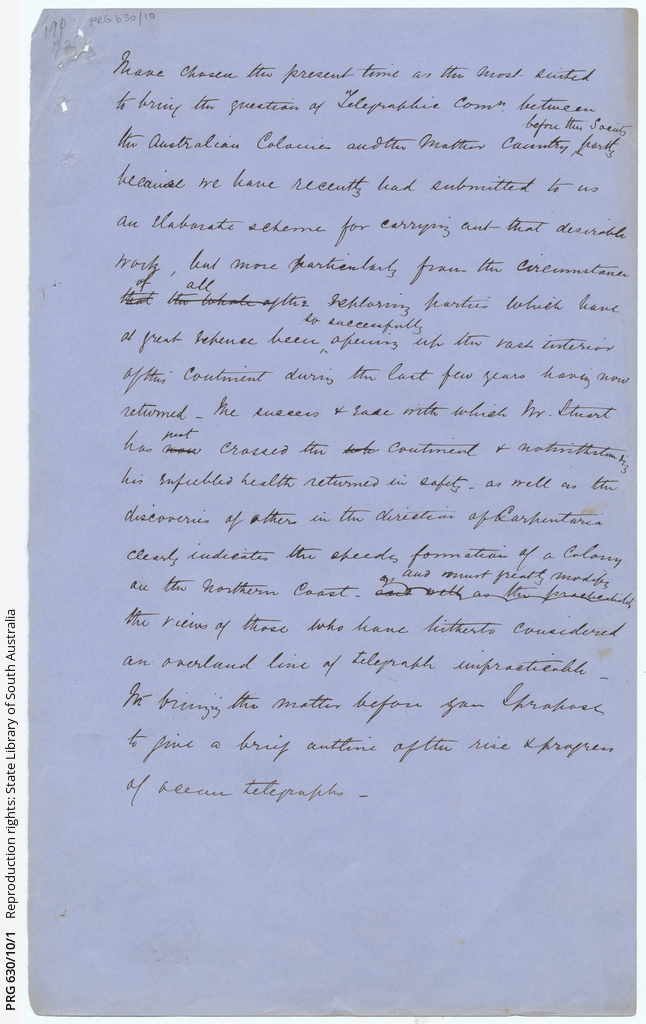 PRG 630/10
I have chosen the present time as the most suited
to bring the question of Telegraphic Comn. between
before this Society
the Australian Colonies and the Mother Country partly
because we have recently had submitted to us
an elaborate scheme for carrying out that desirable
work, but more particularly from the circumstance
of all
that the whole of the Exploring parties which have
so successfully
at great Expence been opening up the vast interior
of this Continent during the last few years having now
returned - The success & Ease with which Mr. Stuart
just
has now crossed the Continent & notwithstanding
his Enfiebled health returned in safety - as well as the
discoveries of others in the direction of Carpentaria
clearly indicates the speedy formation of a Colony
and must greatly modify
on the Northern Coast - and well as the practicability
the views of those who have hitherto considered
an overland line of telegraph impracticable -
In bringing the matter before you I propose
to give a brief outline of the rise & progress
of ocean telegraphs -
PRG 630/10/1 Reproduction rights: State Library of South Australia